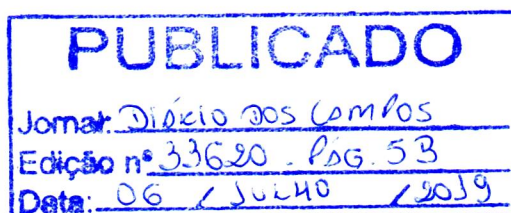 PUBLICADO
Jornal: DIÁRIO DOS CAMPOS
Edição nº 33620 - PÁG. 5B
Data: 06 / JULHO / 2019